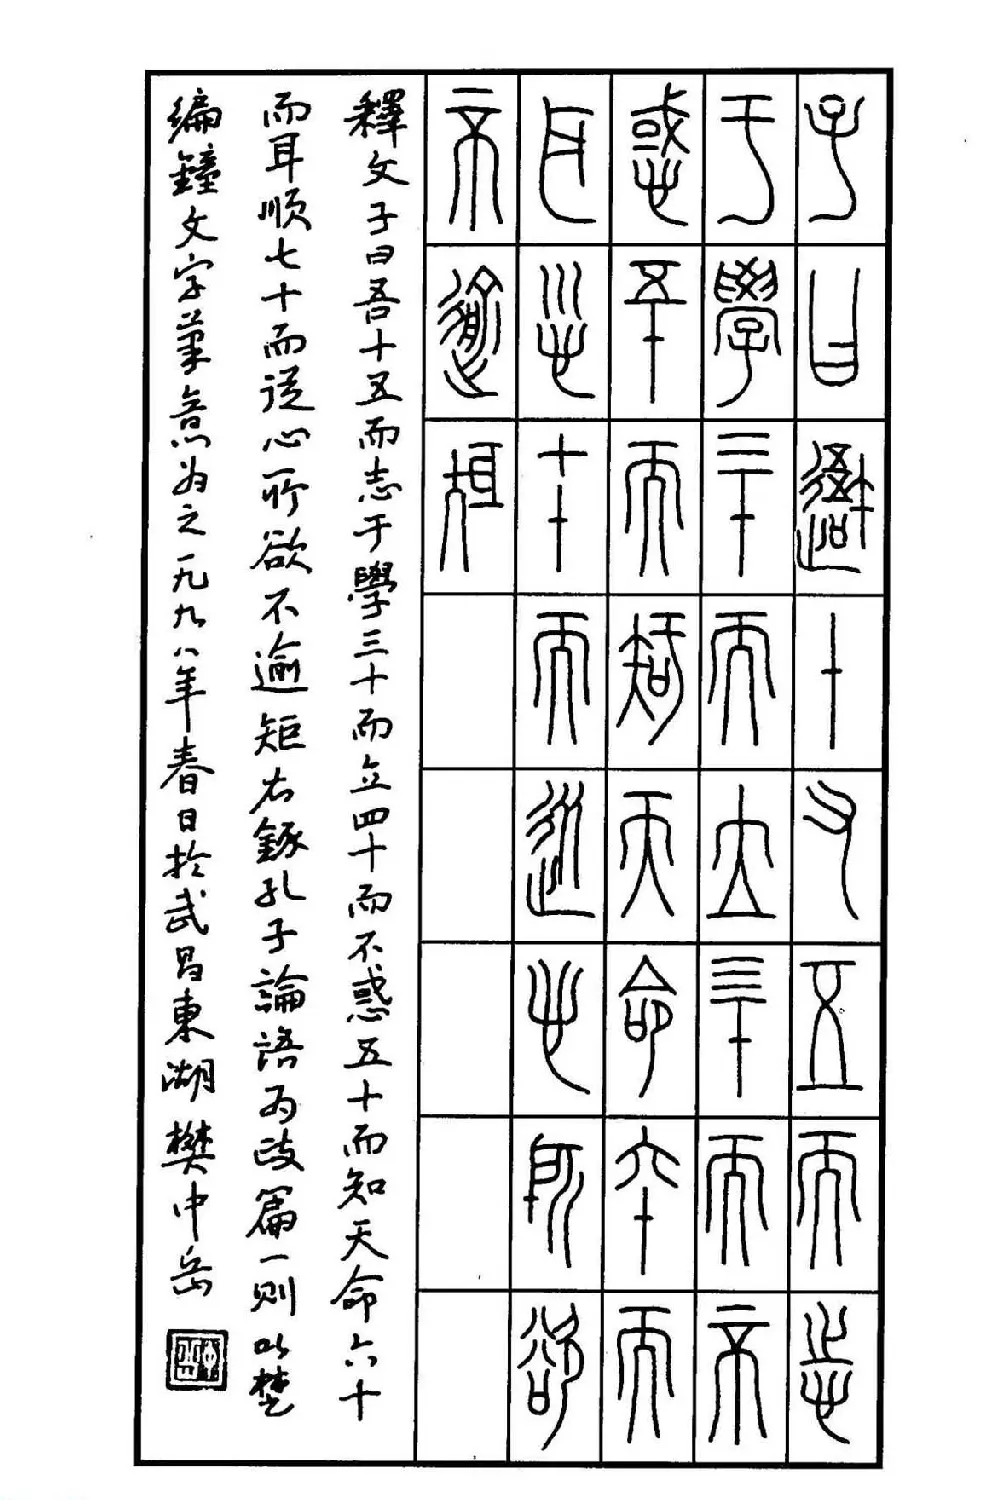 子曰吾十又五而志
于學三十而立四十而不
惑五十而知天命六十而
耳順七十而從心所欲
不逾矩
釋文子曰吾十五而志于學三十而立四十而不惑五十而知天命六十
而耳順七十而從心所欲不逾矩右錄孔子論語为政篇一則以楚
編鐘文字筆意为之一九九八年春日於武昌東湖樊中岳